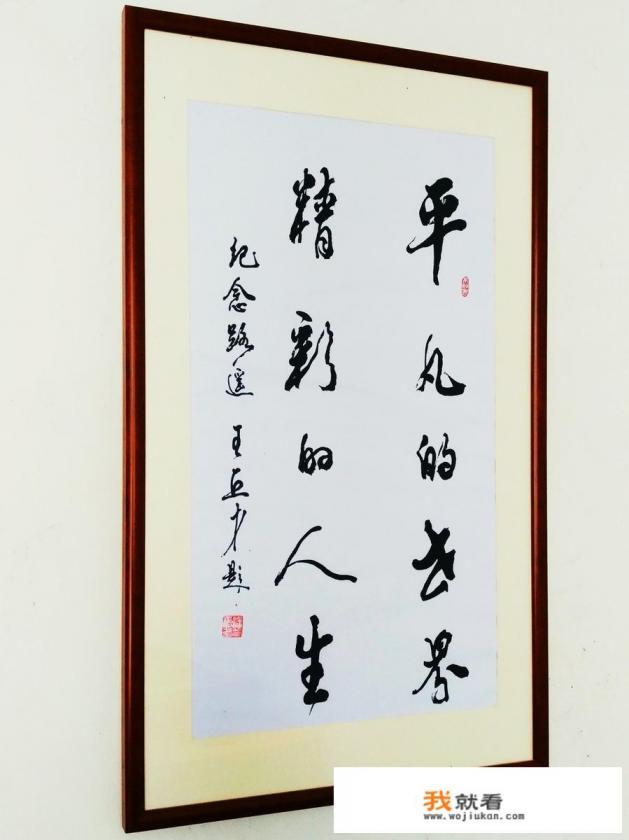 平凡的世界
精彩的人生
纪念路遥 王巨才题
我就看
www.wojiukan.com